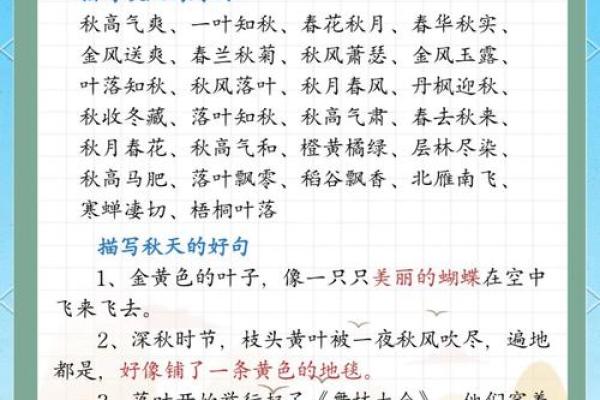 秋高气爽、一叶知秋、春花秋月、春华秋实、
金风送爽、春兰秋菊、秋风萧瑟、金风玉露、
叶落知秋、秋风落叶、秋月春风、丹枫迎秋、
秋收冬藏、落叶知秋、秋高气肃、春去秋来、
秋月春花、秋高气和、橙黄橘绿、层林尽染、
秋高马肥、落叶飘零、稻谷飘香、北雁南飞、
寒蝉凄切、梧桐叶落
描写秋天的好句
1、金黄色的叶子，像一只只美丽的蝴蝶在空中
飞来飞去。
2、深秋时节，枝头黄叶被一夜秋风吹尽，遍地
都是，好像铺了一条黄色的地毯。